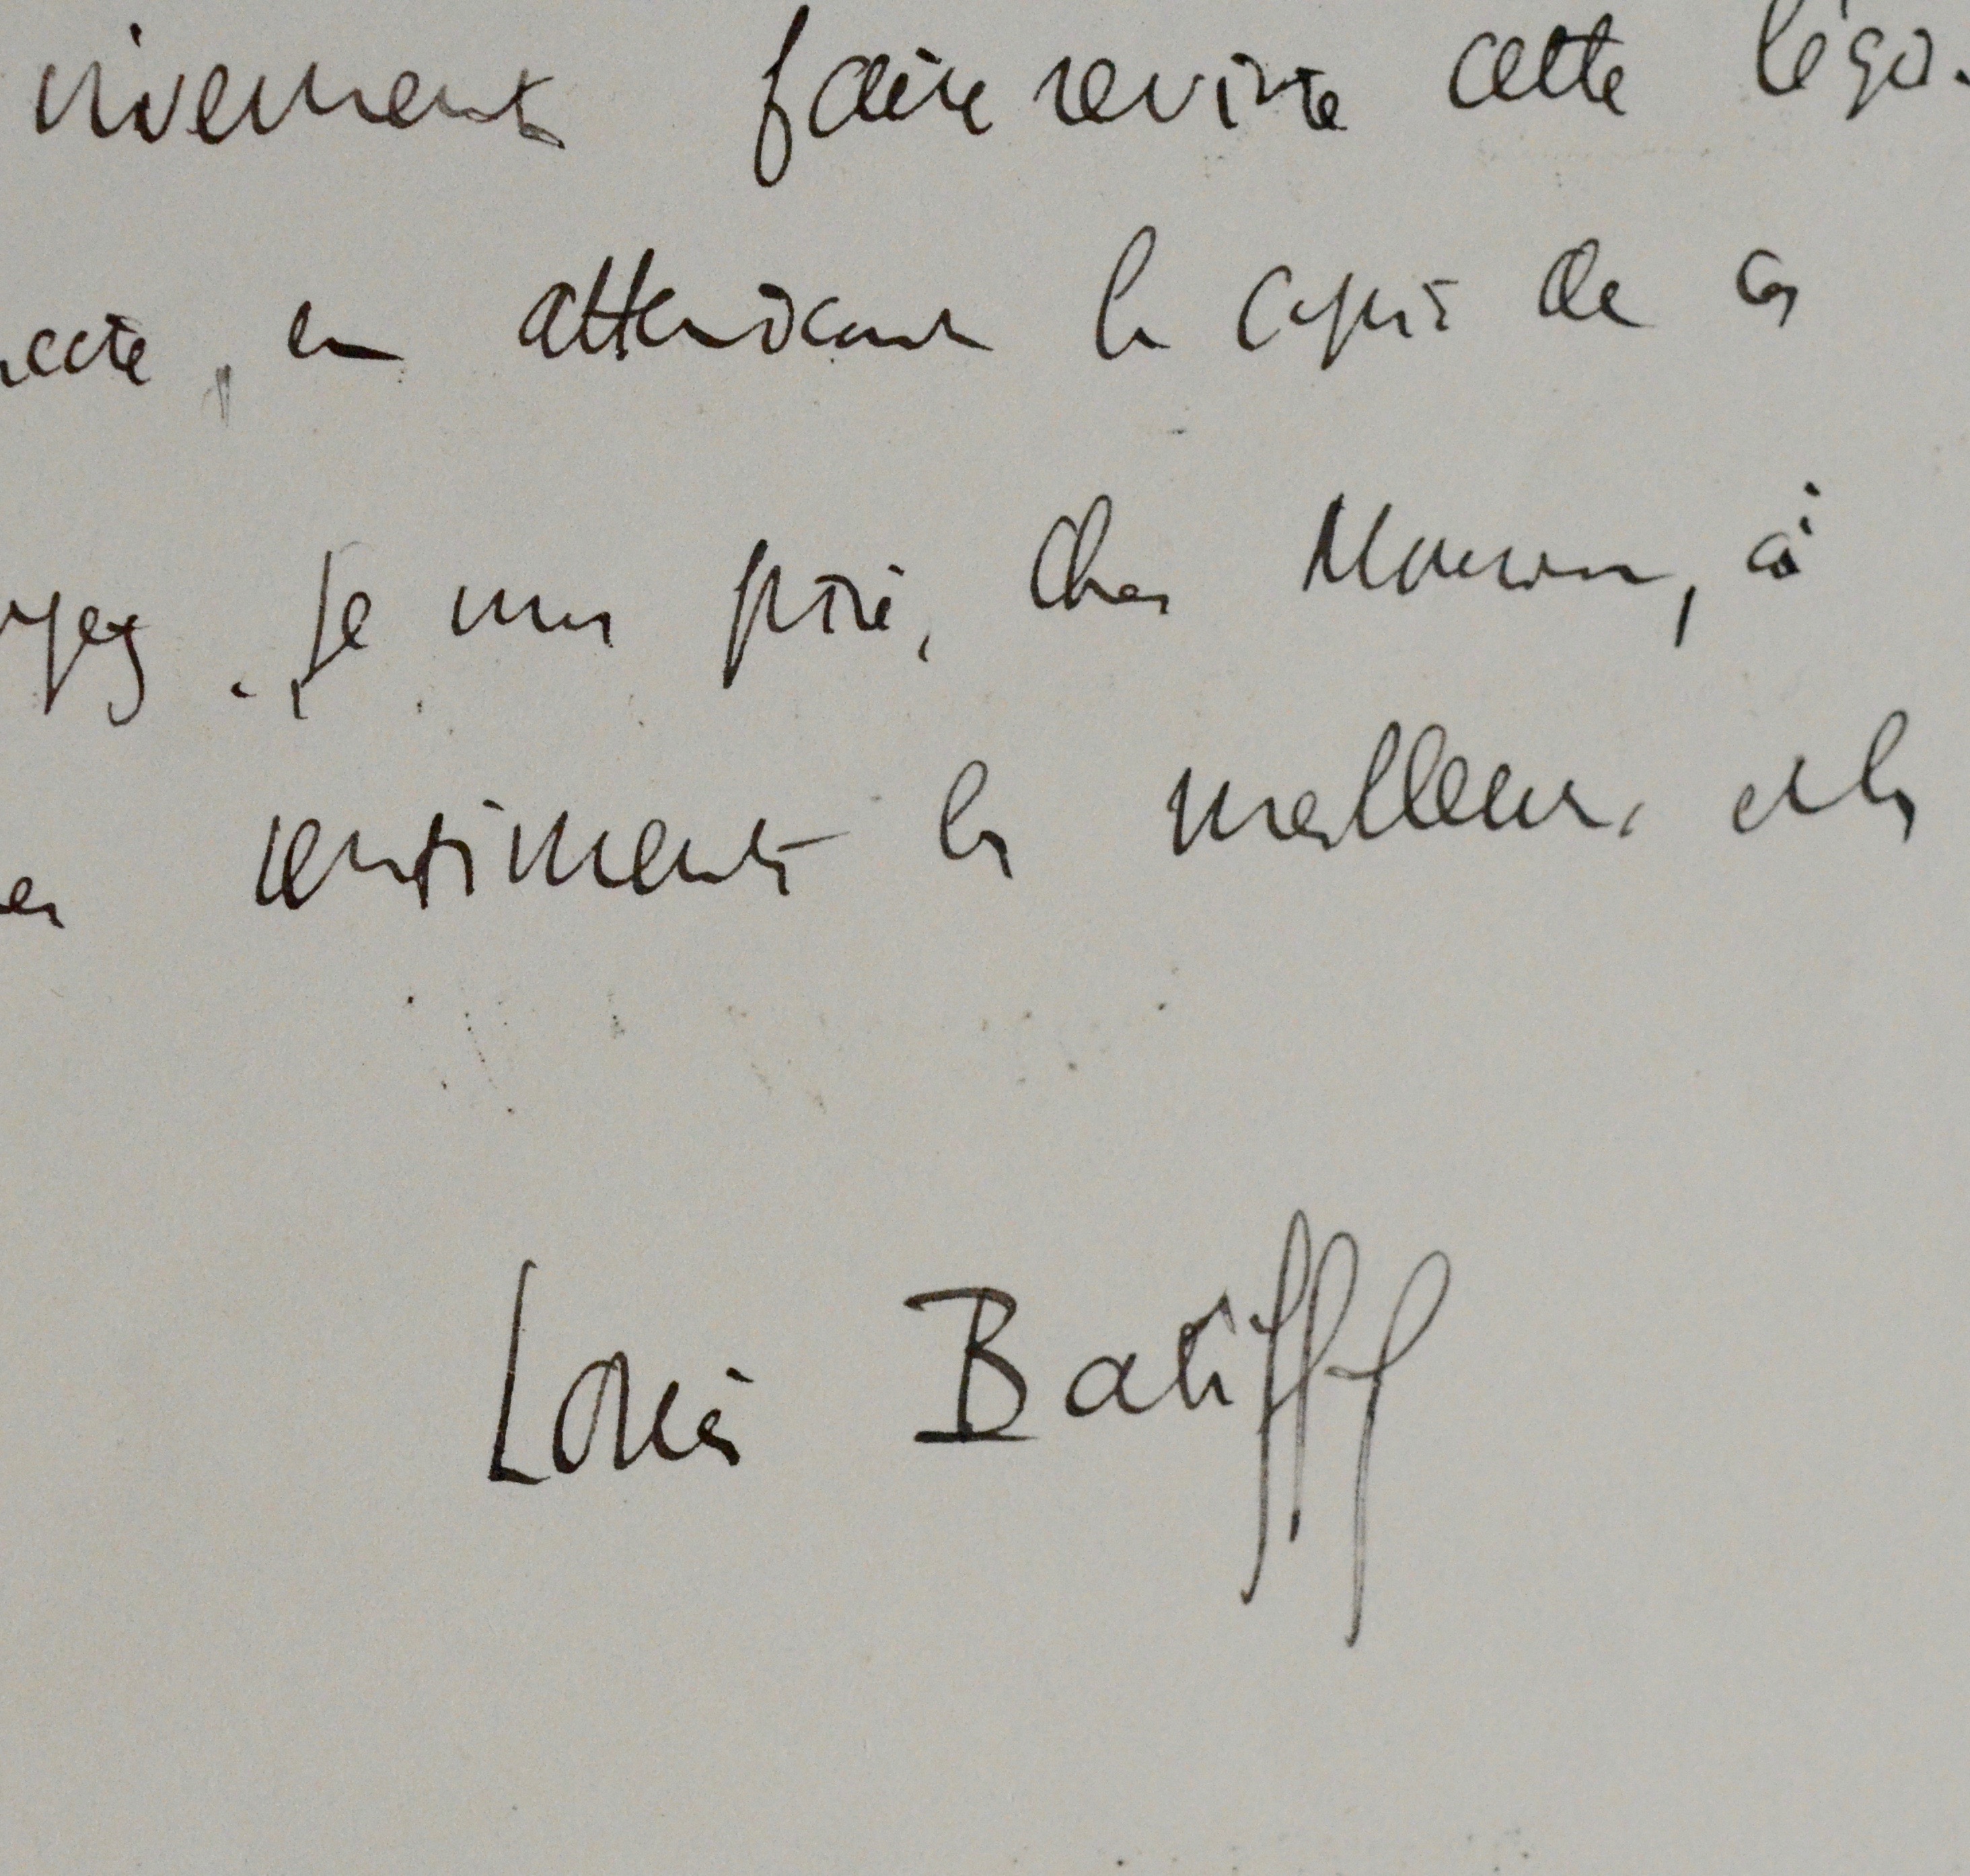 vivement faire revivre cette léga-
en attendant la copie de ces
. Je vous prie, cher Monsieur, à
sentiments les meilleurs et les
Louis Batiffol